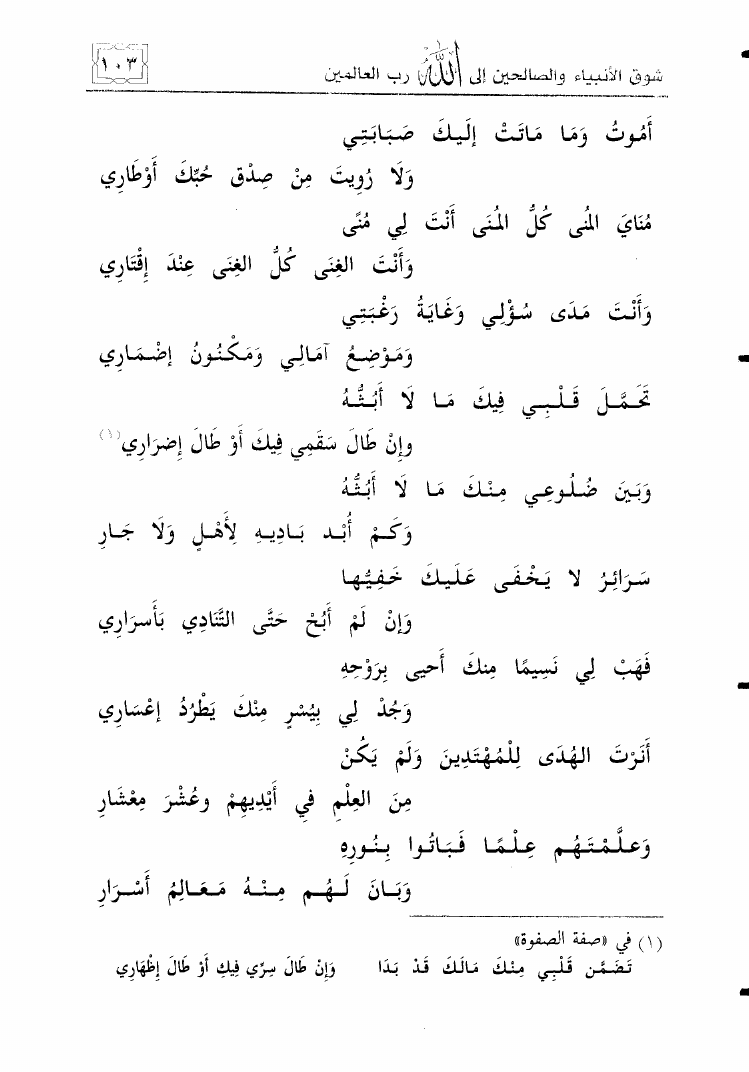 شوق الأنبياء والصالحين إلى الله رب العالمين ١٠٣
أَمُوتُ وَمَا مَاتَتْ إِلَيكَ صَبَابَتِي
وَلَا رُوِيتَ مِنْ صِدْقِ حُبِّكَ أَوْطَارِي
مُنَايَ المُنى كُلُّ المُنَى أَنْتَ لِي مُنًى
وَأَنْتَ الغِنَى كُلُّ الغِنَى عِنْدَ إِقْتَارِي
وَأَنْتَ مَدَى سُؤْلِي وَغَايَةُ رَغْبَتِي
وَمَوْضِعُ آمَالِي وَمَكْنُونُ إضْمَارِي
تَحَمَّلَ قَلْبِي فِيكَ مَا لَا أَبُثُّهُ
وإنْ طَالَ سَقَمِي فِيكَ أَوْ طَالَ إِضرَارِي(١)
وَبَينَ ضُلُوعِي مِنْكَ مَا لَا أَبُثُّهُ
وَكَمْ أُبْد بَادِيهِ لِأَهْلٍ وَلَا جَارِ
سَرَائِرُ لا يَخْفَى عَلَيكَ خَفِيُّهَا
وَإنْ لَمْ أَبُحْ حَتَّى التَّنَادِي بَأَسرَارِي
فَهَبْ لِي نَسِيمًا مِنكَ أَحيى بِرَوْحِهِ
وَجُدْ لِي بِيُسْرٍ مِنْكَ يَطْرُدُ إعْسَارِي
أَنَرْتَ الهُدَى لِلْمُهْتَدِينَ وَلَمْ يَكُنْ
مِنَ العِلْمِ فِي أَيْدِيهِمْ وعُشْرَ مِعْشَارِ
وَعلَّمْتَهُم عِلْمًا فَبَاتُوا بِنُورِهِ
وَبَانَ لَهُم مِنْهُ مَعَالِمُ أَسْرَارِ
(١) في «صفة الصفوة»
تَضَمَّن قَلْبِي مِنْكَ مَالَكَ قَدْ بَدَا وَإنْ طَالَ سِرِّي فِيكِ أَوْ طَالَ إظْهَارِي